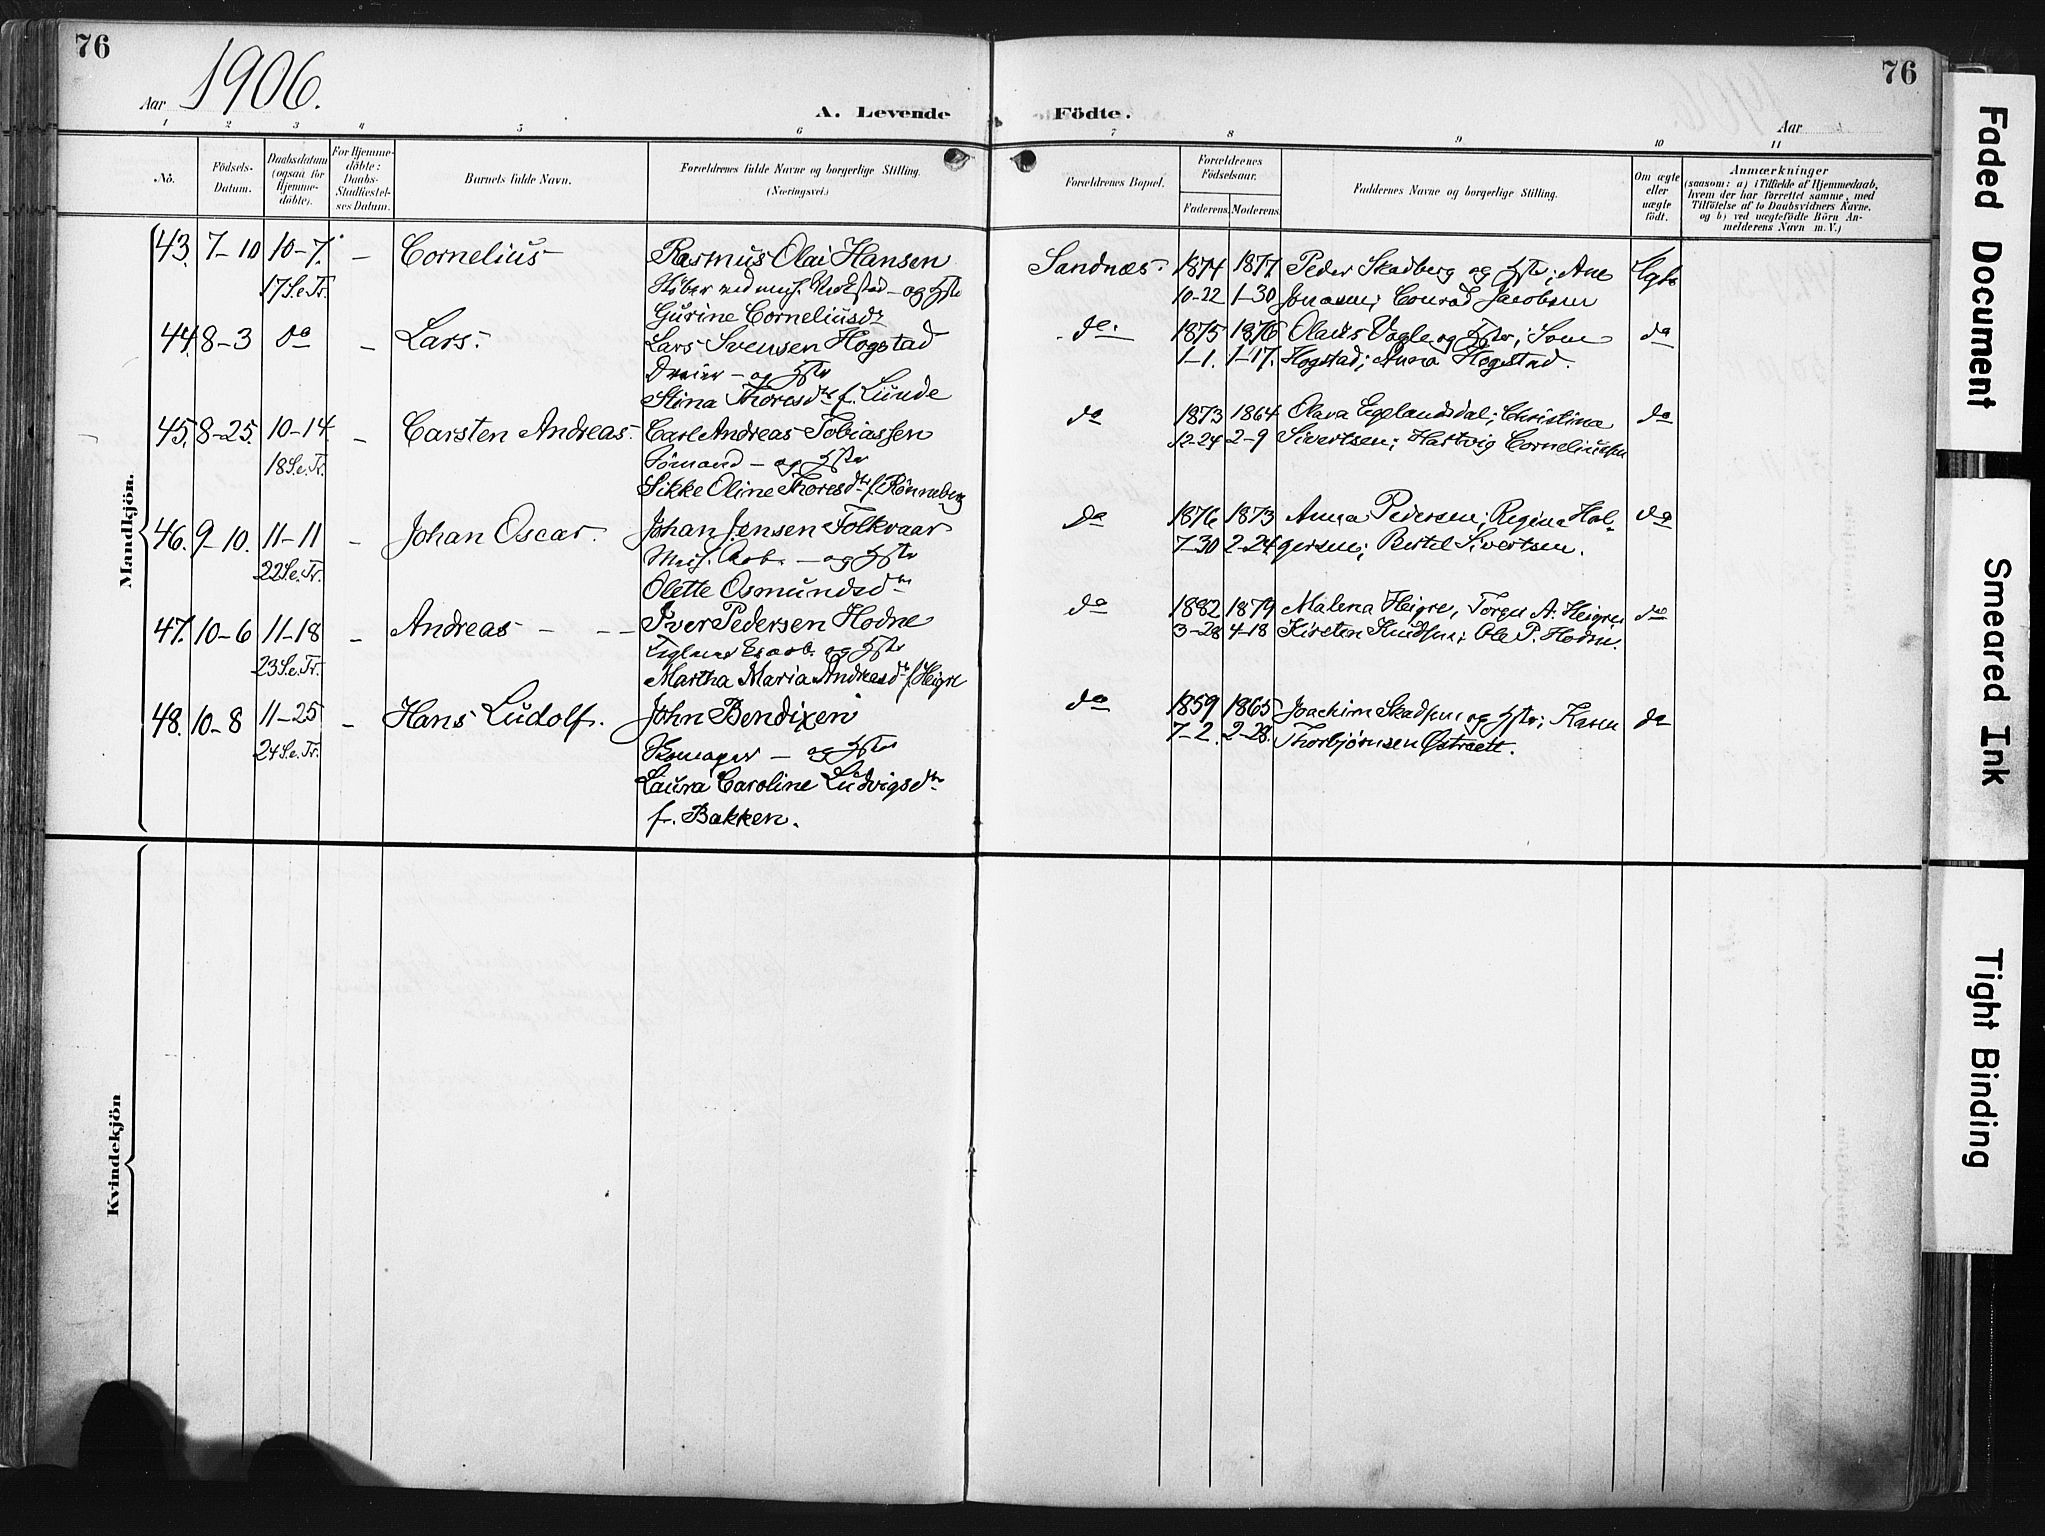 76
76
Aar 1906.
A. Levende Födte.
Aar
1 2 3 4 5 6 7 8 9 10 11
No.
Födsels-
Datum.
Daabsdatum
(ogsaa for
Hjemme-
döbte).
For Hjemme-
döbte:
Daabs-
Stadfæstel-
ses Datum.
Barnets fulde Navn.
Forældrenes fulde Navne og borgerlige Stilling.
(Næringsvei.)
Forældrenes Bopæl.
Forældrenes
Födselsaar.
Faderens. Moderens.
Faddernes Navne og borgerlige Stilling.
Om ægte
eller
uægte
födt.
Anmærkninger
(saasom: a) i Tilfælde af Hjemmedaab,
hvem der har forrettet samme, med
Tilföielse af to Daabsvidners Navne,
og b) ved uægtefödte Börn An-
melderens Navn m. V.)
Mandkjön.
43. 7-10 10-7. - Cornelius Rasmus Olai Hansen Sandnæs. 1874 1877 Peder Skadberg og Hstr; Ane
17 S.e.Tr. og Hstr 10-22 1-30 Jonasen; Conrad Jacobsen
Gurine Corneliusdr
44. 8-3 do - Lars. Lars Svensen Hogstad do 1875 1876 Olaus Vagle og Hstr; do
Dreier - og Hstr 1-1. 1-17. Hogstad; Anna Hogstad.
Stina Thoresdtr f. Lunde
45. 8-25. 10-14. - Carsten Andreas. Carl Andreas Tobiassen do 1873 1864 Olava Egelandsdal; Christina do
18 S.e.Tr. Sömand - og Hstr 12-24 2-9 Sivertsen; Hartvig Corneliussen
Sikke Oline Thoresdtr f. Rönneberg
46. 9-10. 11-11 - Johan Oscar. Johan Jensen Folkvaar do 1876 1873 Anna Pedersen; Regine Hol- do
22 S.e.Tr. Arb. - og Hstr 7-30 2-24 gersen; Bertel Sivertsen.
Olette Osmundsdtr
47. 10-6 11-18 - Andreas - - - Iver Pedersen Hodne do 1882 1879 Malena Heigre, Torger A. Heigre, do
23 S.e.Tr. og Hstr 3-28 4-18 Kirsten Knudsen; Ole P. Hodne.
Martha Maria Andreasdtr f. Heigre
48. 10-8 11-25 - Hans Ludolf. John Bendixen do 1859 1865 Joachim Skadsem og Hstr; Karen do
24 S.e.Tr. Skomager - og Hstr 7-2. 2-28. Thorbjørnsen Østraett.
Laura Caroline Ludvigsdtr
f. Bakken.
Kvindekjön
Faded Document
Smeared Ink
Tight Binding